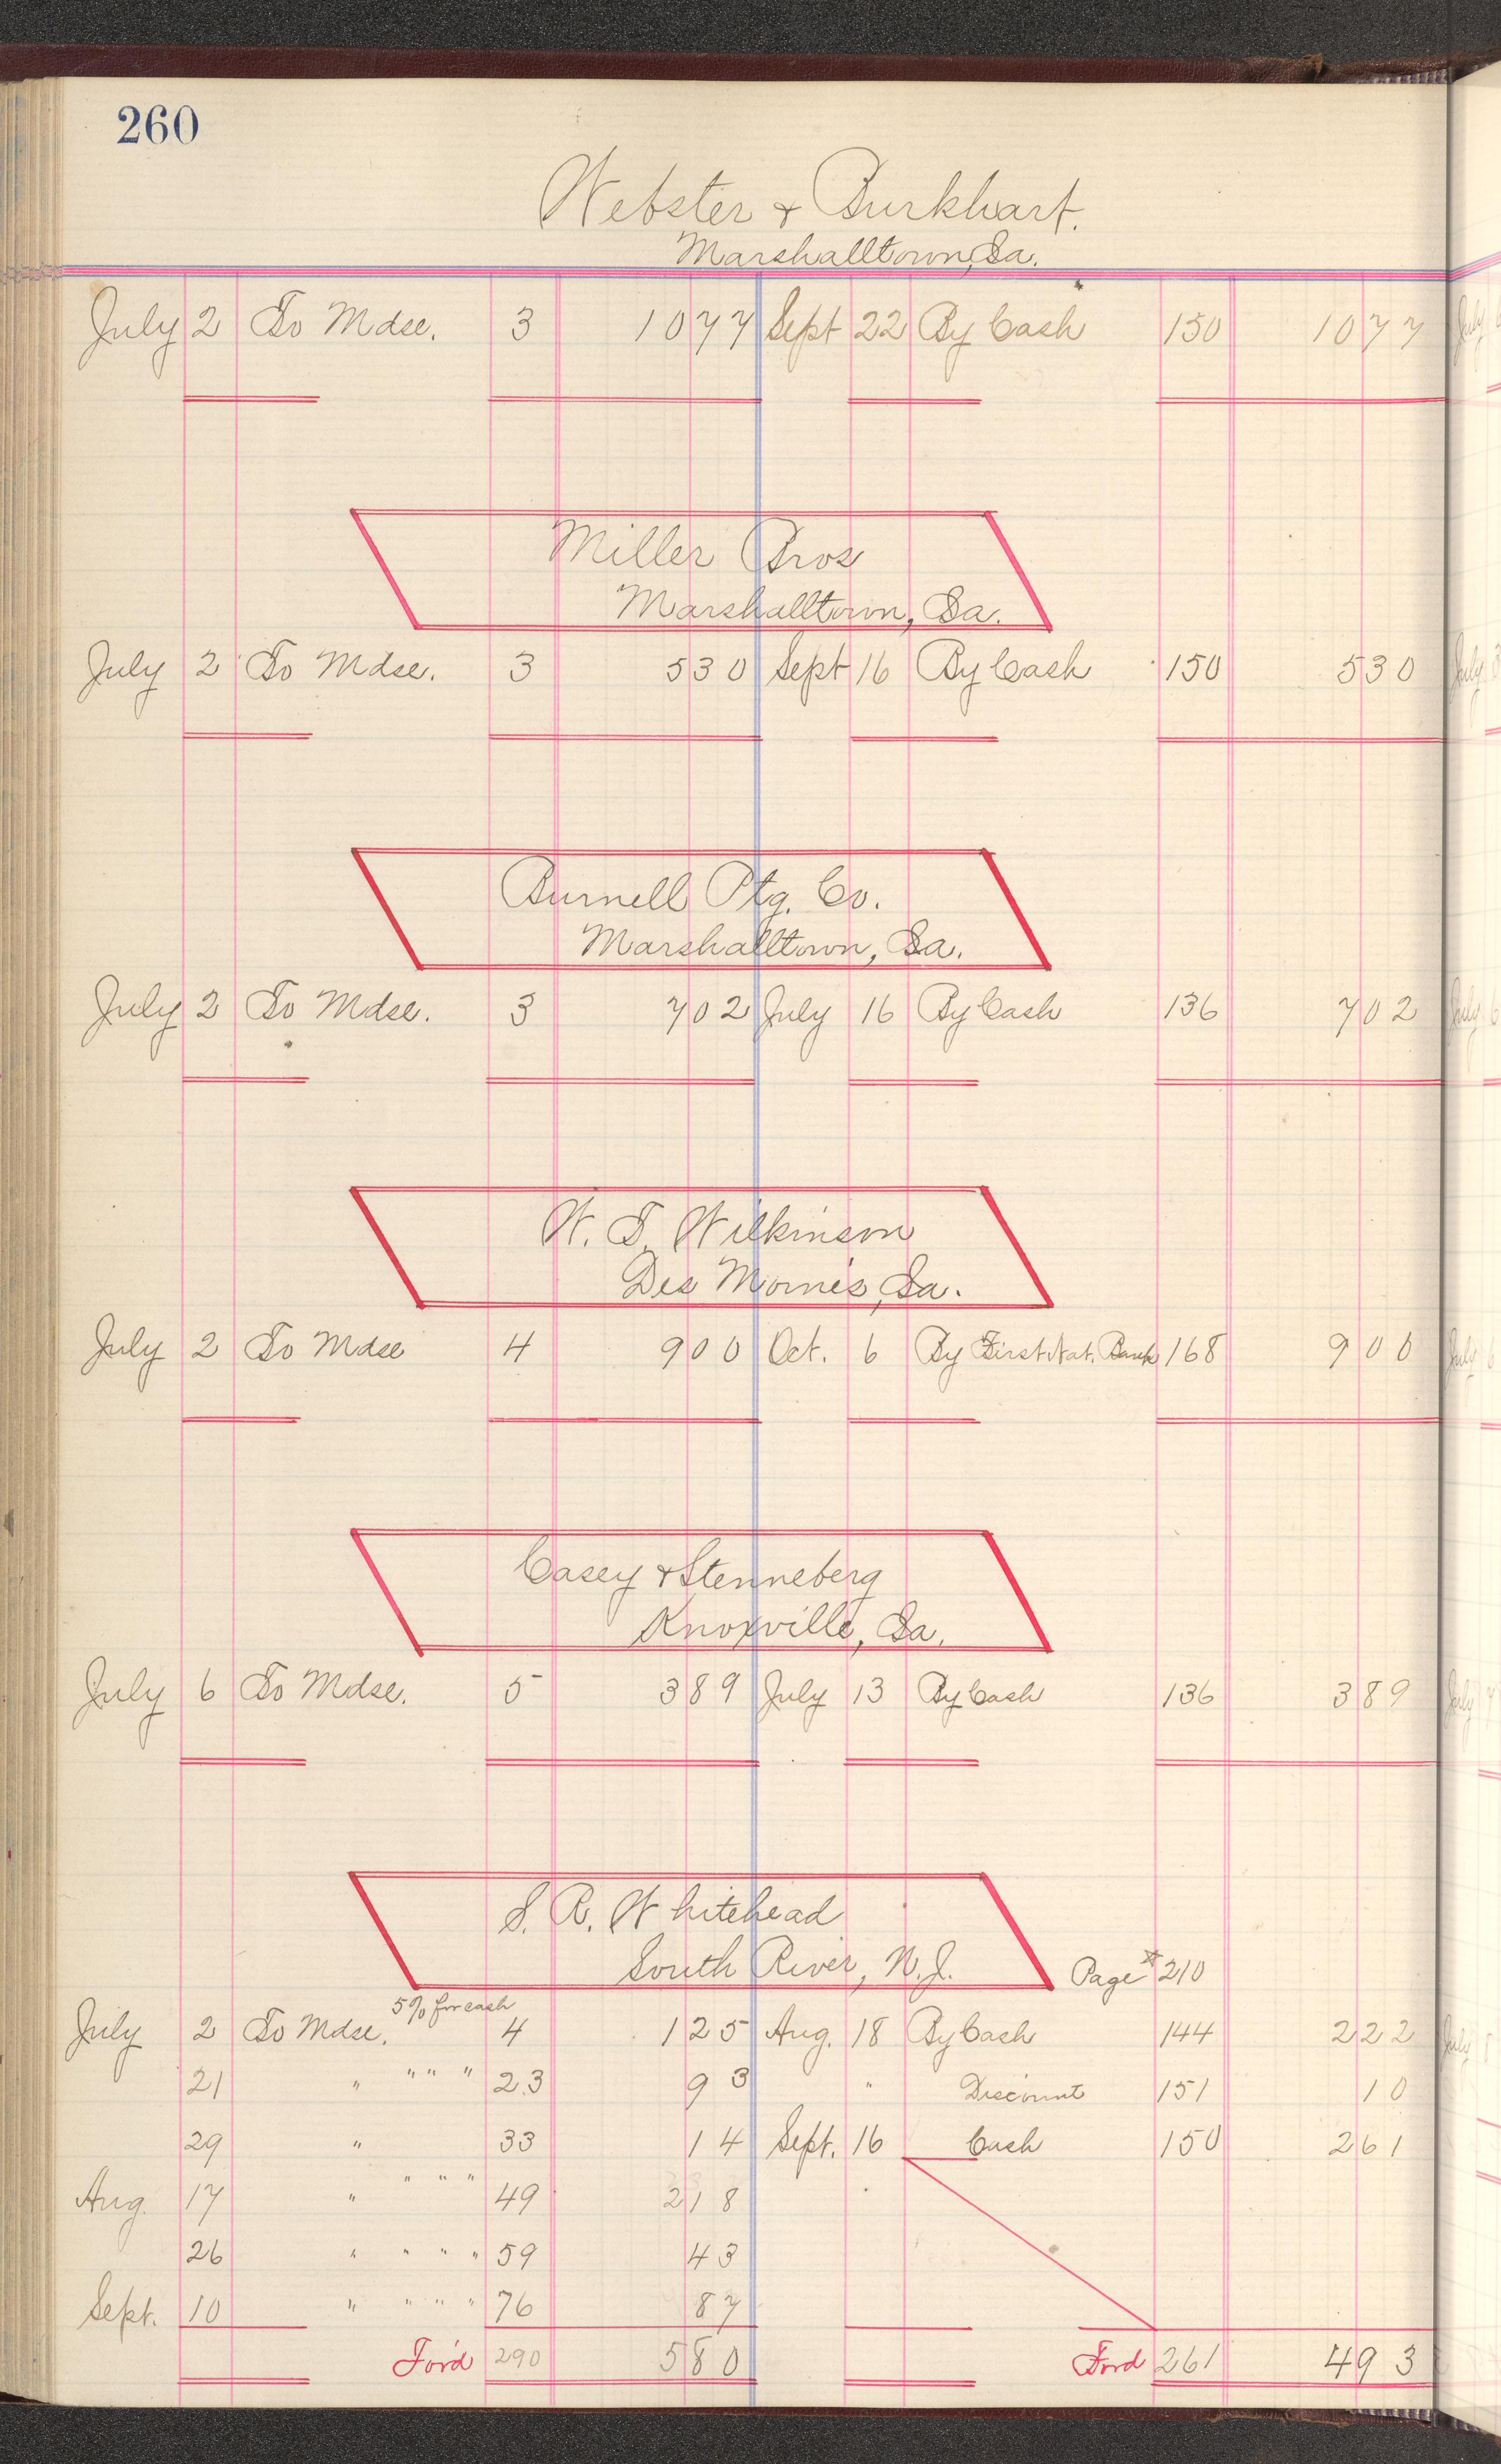 260
Webster & Burkhart.
Marshalltown, Ia.
July 2 To Mdse. 3 10 77 Sept 22 By Cash 150 10 77
Miller Bros
Marshalltown, Ia.
July 2 To Mdse. 3 5 30 Sept 16 By Cash 150 5 30
Burnell Ptg. Co.
Marshalltown, Ia.
July 2 To Mdse. 3 7 02 July 16 By Cash 136 7 02
W. T. Wilkinson
Des Moines, Ia.
July 2 To Mdse 4 9 00 Oct. 6 By First Nat. Bank 168 9 00
Casey & Stenneberg
Knoxville, Ia.
July 6 To Mdse. 5 3 89 July 13 By Cash 136 3 89
S. R. Whitehead
South River, N.J. Page 210
July 2 To Mdse. 5% for cash 4 1 25 Aug. 18 By Cash 144 2 22
21 " " " " 23 93 " Discount 151 10
29 " 33 14 Sept. 16 Cash 150 2 61
Aug. 17 " " " " 49 2 18
26 " " " " 59 43
Sept. 10 " " " " 76 87
For'd 290 5 80 Ford 261 4 93